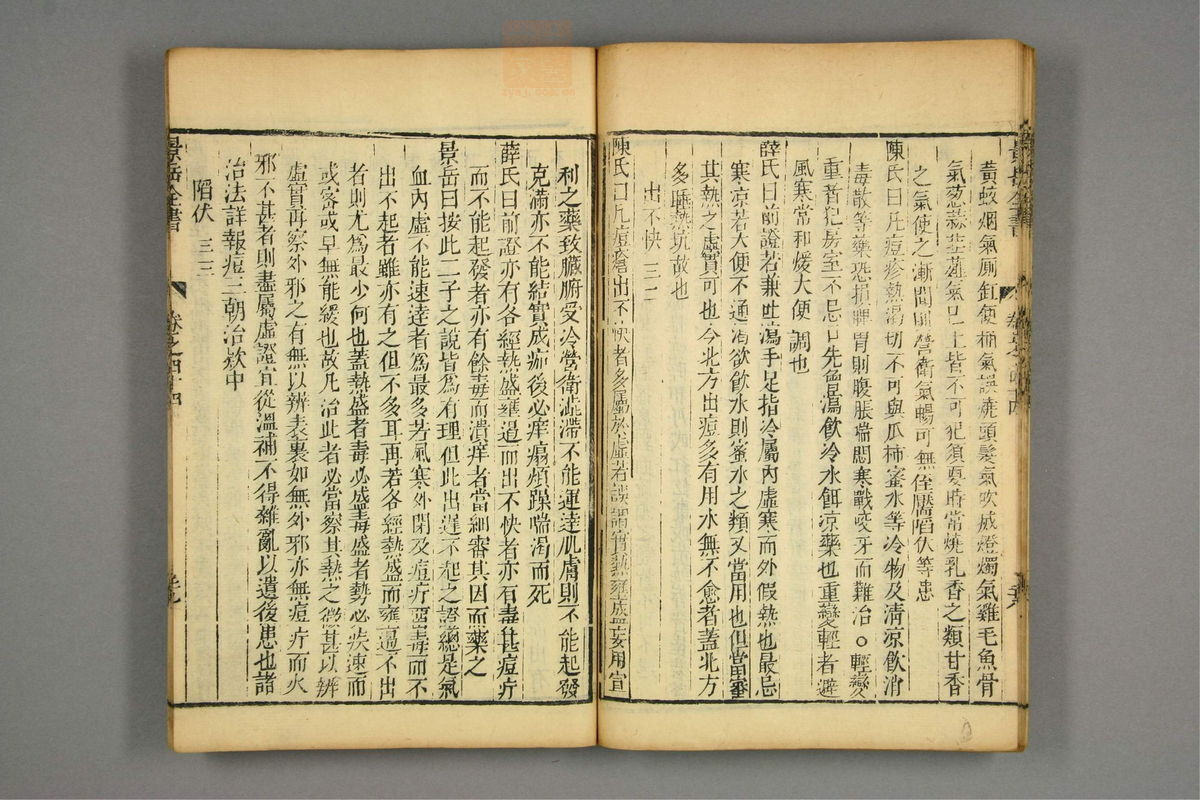 黃蚊烟氣厠缸便桶氣誤燒頭髮氣吹滅燈燭氣雞毛魚骨
氣葱蒜韭薤氣已上皆不可犯須要時常燒乳香之類甘香
之氣使之漸聞則營衛氣暢可無倒靨陷伏等患
陳氏曰凡痘疹熱渴切不可與瓜柿蜜水等冷物及清凉飲消
毒散等藥恐損脾胃則腹脹喘悶寒戰咬牙而難治○輕變
重者犯房室不忌口先曾瀉飲冷水餌凉藥也重變輕者避
風寒常和煖大便調也
薛氏曰前證若兼吐瀉手足指冷屬内虛寒而外假熱也最忌
寒凉若大便不通渴欲飲水則蜜水之類又當用也但當審
其熱之虛實可也今北方出痘多有用水無不愈者蓋北方
多睡熱炕故也
出不快
陳氏曰凡痘瘡出不快者多屬於虛若誤謂實熱壅盛妄用宣
景岳全書
卷之四十四
利之藥致臟腑受冷營衛澁滯不能運達肌膚則不能起發
充滿亦不能結實成痂後必痒塌煩躁喘渴而死
薛氏曰前證亦有各經熱盛壅遏而出不快者亦有毒甚痘疔
而不能起發者亦有餘毒而潰痒者當細審其因而藥之
景岳曰按此二子之說皆爲有理但此出遲不起之證總是氣
血内虛不能速達者爲最多若風寒外閉及痘疔惡毒而不
出不起者雖亦有之但不多耳再若各經熱盛而壅遏不出
者則尤爲最少何也蓋熱盛者毒必盛毒盛者勢必疾速而
或密或早無能緩也故凡治此者必當察其熱之微甚以辨
虛實再察外邪之有無以辨表裏如無外邪亦無痘疔而火
邪不甚者則盡屬虛證宜從溫補不得雜亂以遺後患也諸
治法詳報痘三朝治欵中
陷伏 三三
景岳全書
卷之四十四